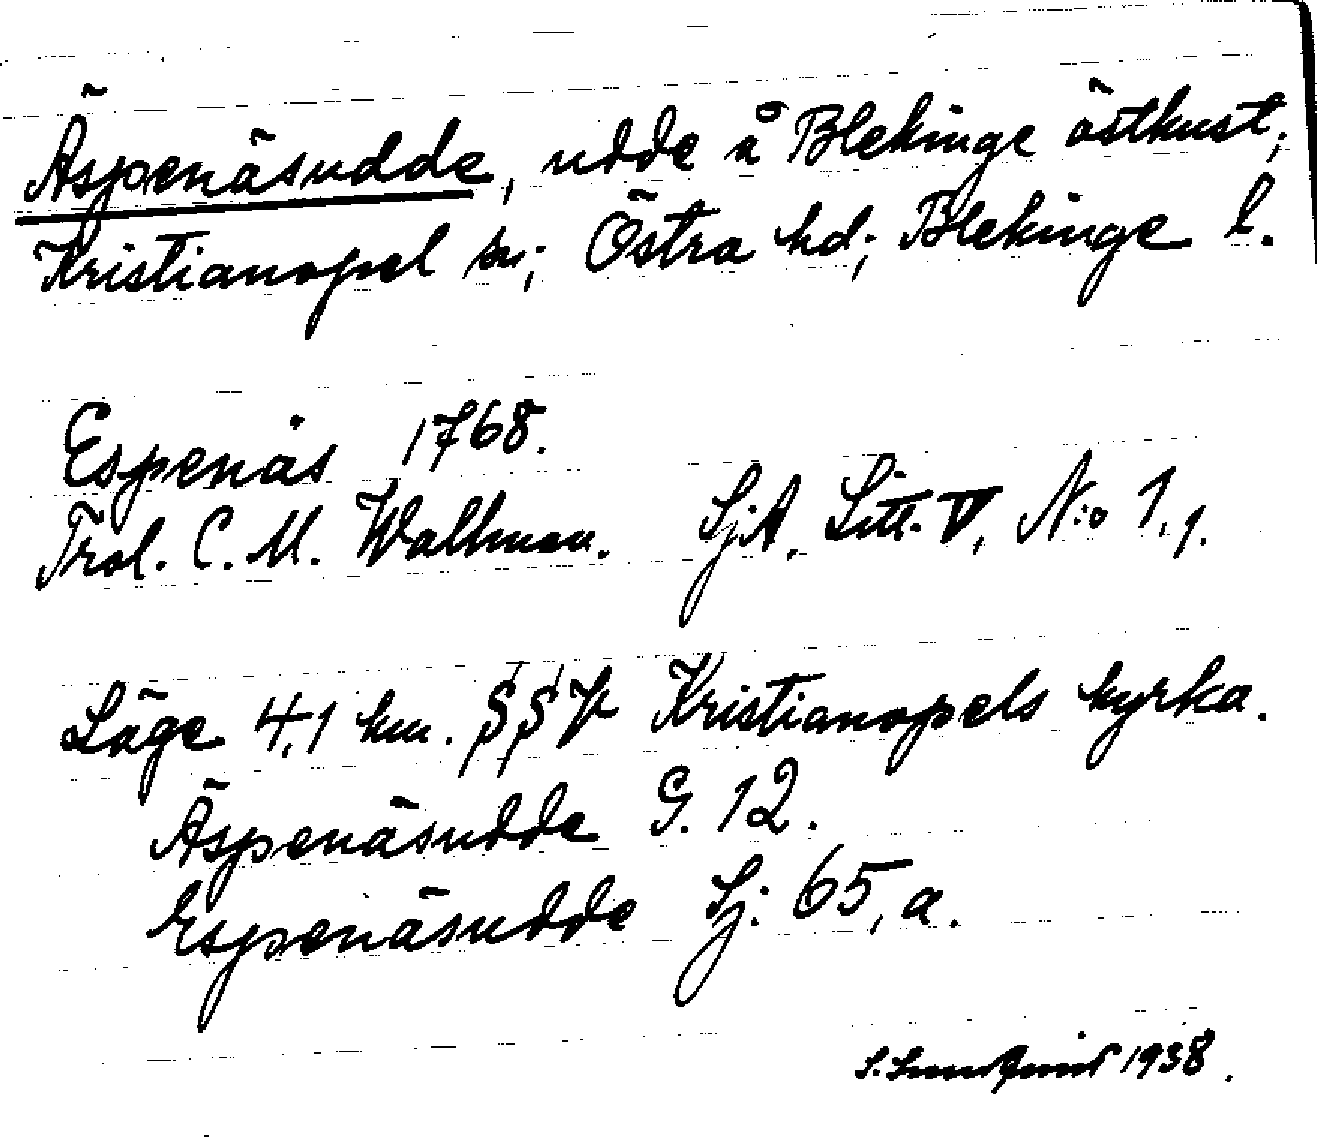 Äspenäsudde, udde å Blekinge östkust,
Kristianopel sn; Östra hd; Blekinge l.
Espenäs 1768.
Trol. C. M. Wallman. Sj.A. Litt. V, N:o 1, 1.
Läge 4,1 km. SSV Kristianopels kyrka.
Äspenäsudde G. 12.
Espenäsudde Sj: 65, a.
1938.